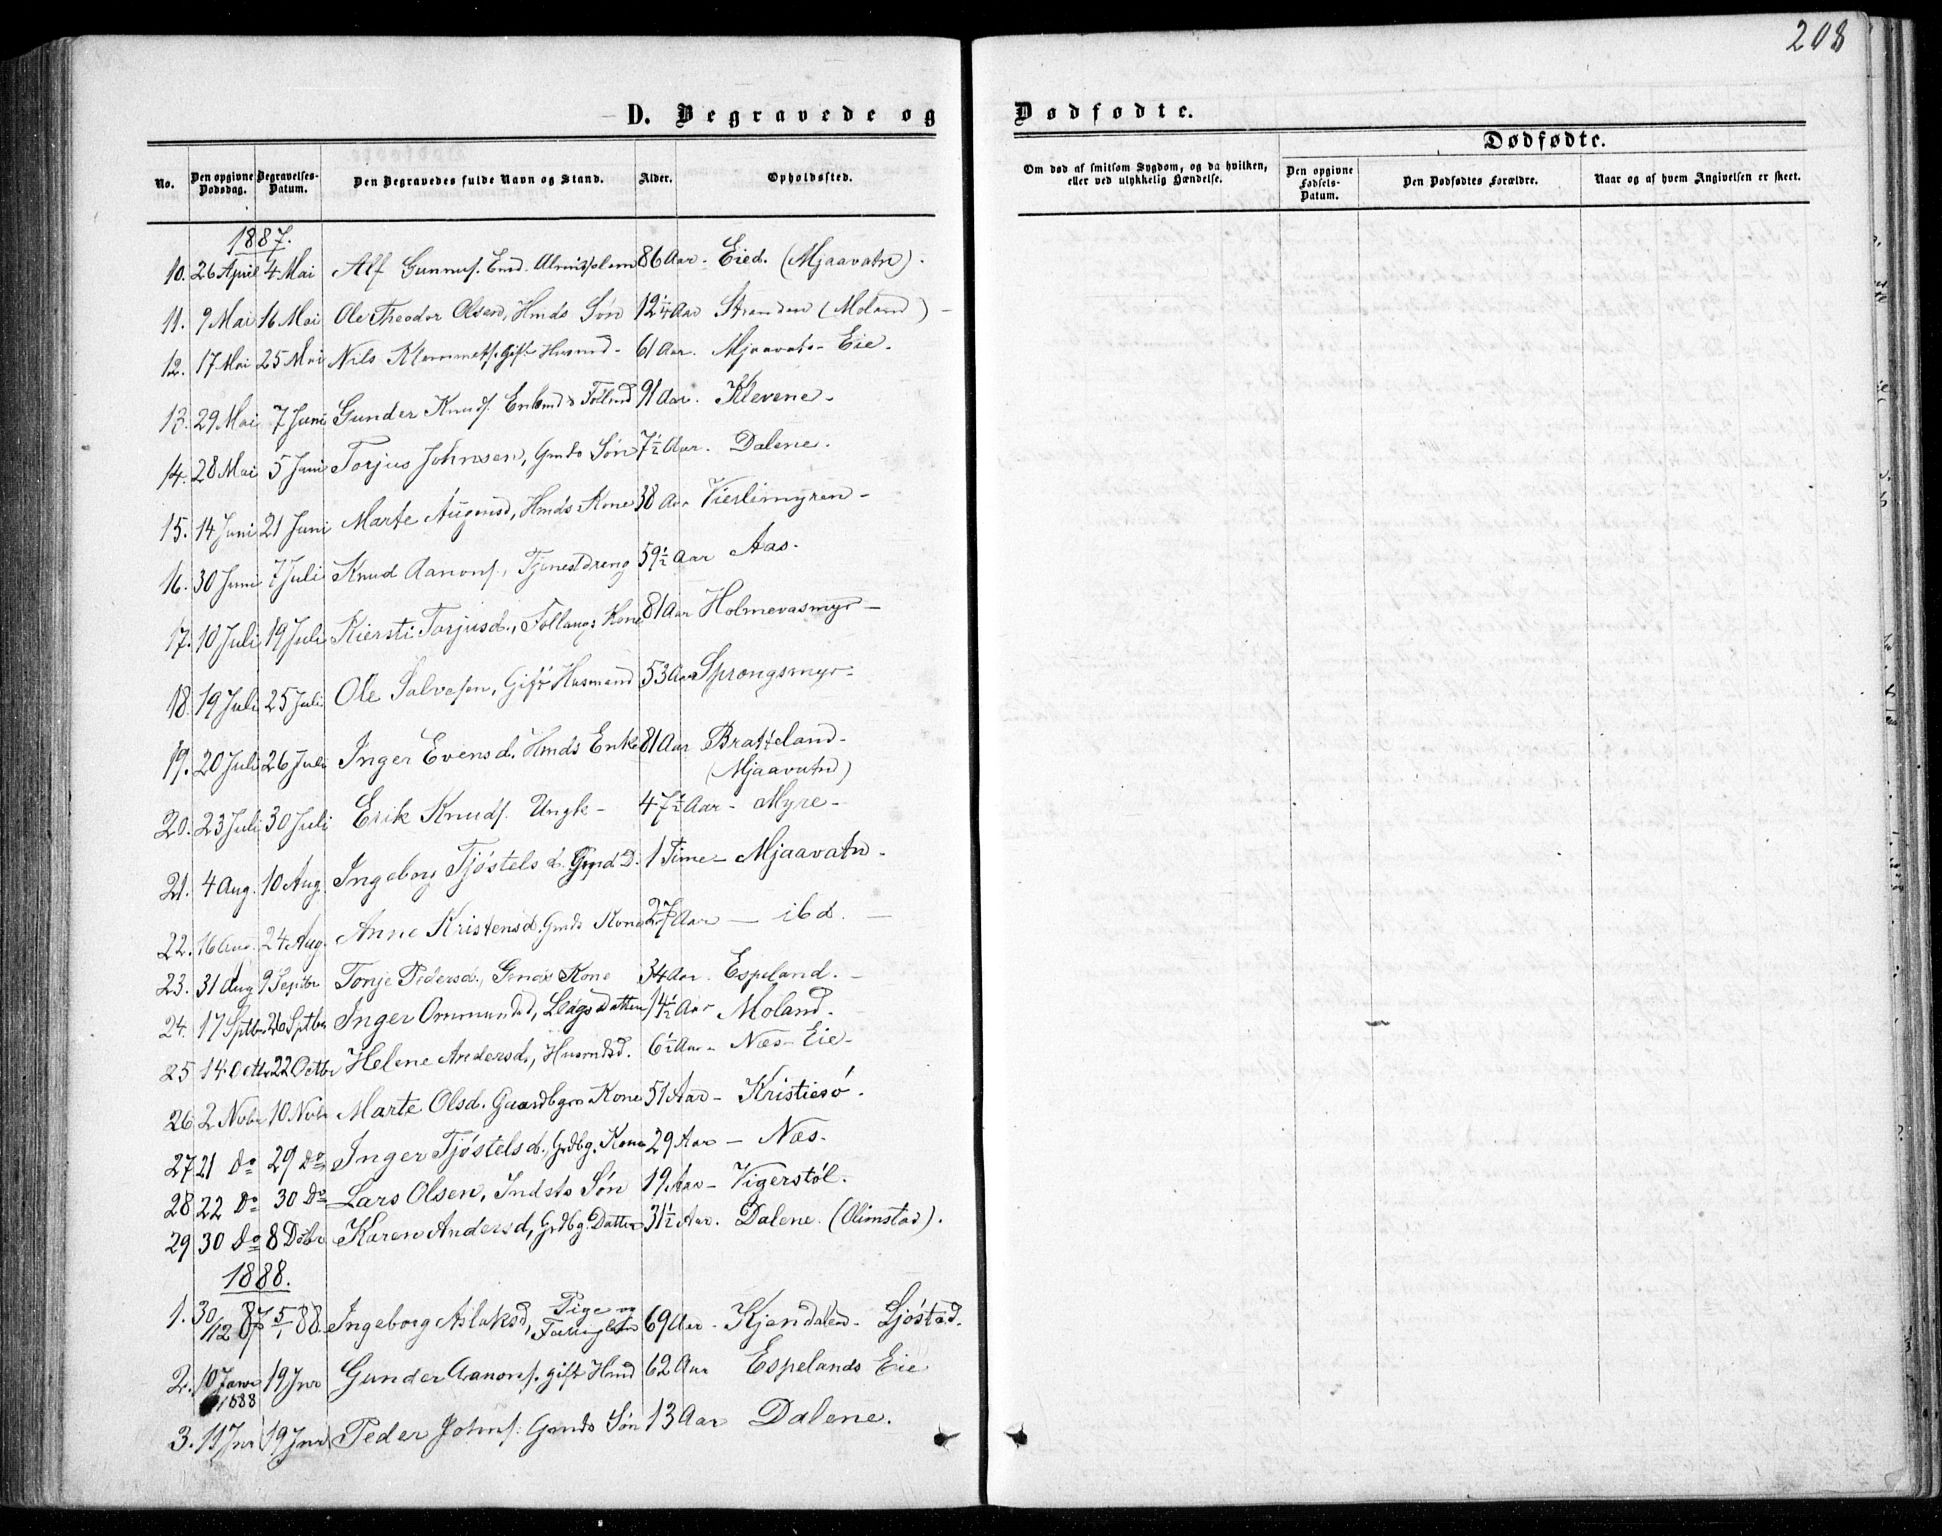 208
D. Begravede og Dødfødte.
No. Den opgivne Dødsdag. Begravelses-Datum. Den Begravedes fulde Navn og Stand. Alder. Opholdssted.
Om død af smitsom Sygdom, og da hvilken, eller ved ulykkelig Hændelse.
Dødfødte.
Den opgivne Fødsels-Datum. Den Dødfødtes Forældre. Naar og af hvem Angivelsen er skeet.
1887.
10. 26 April 4 Mai Alf Gunnuf. End. 86 Aar. Eied. (Mjaavatn).
11. 9 Mai 16 Mai Ole Theodor Olsen, Hmds Søn 12 1/4 Aar Stranden (Moland) -
12. 17 Mai 25 Mai Nils Klemmets. Gift Husmd - 61 Aar. Mjaavatn - Eie.
13. 29 Mai 7 Juni Gunder Knuds. Enkmd & Føllmd 91 Aar. Klevene -
14. 28 Mai 5 Juni Torjus Johnsen, Gmds Søn 7 1/2 Aar. Dalene.
15. 14 Juni 21 Juni Marte Augensd, Hmds Kone 38 Aar Vierlimyren -
16. 30 Juni 7 Juli Knud Aanons., Tjenestdreng 59 1/2 Aar Aas.
17. 10 Juli 19 Juli Kiersti Torjusd., Follaugs Kone 81 Aar Holmevasmyr -
18. 19 Juli 25 Juli Ole Salvesen, Gift Husmand 53 Aar Sprongsmyr -
19. 20 Juli 26 Juli Inger Evensd. Hmds Enke 81 Aar Bratteland -
(Mjaavatn)
20. 23 Juli 30 Juli Erik Knuds. Ungk - 47 1/2 Aar - Myre -
21. 4 Aug. 10 Aug. Ingeborg Tjøstelsd. Gmd D. 1 Time - Mjaavatn -
22. 16 Aug. 24 Aug. Anne Kristensd. Gmds Kone 27 Aar - ibd. -
23. 31 Aug 9 Septbr Tonje Pedersd., Gmds Kone 34 Aar. Espeland. -
24. 17 Sptbr 26 Sptbr Inger Ommundsd, Lægsdatter 14 1/2 Aar Moland.
25 14 Octbr 22 Octbr Helene Andersd., Husmdsd. 6 1/2 Aar - Næs - Eie -
26 2 Novbr 10 Novbr Marte Olsd. Gaardbgrs Kone 51 Aar - Kristiesø.
27 21 Do 29 Do Inger Tjøstelsd., Grdbg. Kone 29 Aar - Næs.
28 22 Do 30 Do Lars Olsen, Indsts Søn 19 Aar - Vigerstøl.
29 30 Do 8 Dcbr Karen Andersd, Grdbg. Datter 31 1/2 Aar. Dalene. (Olimstad).
1888.
1. 30/12 87 5/1 88 Ingeborg Aslaksd, Pige og 69 Aar. Kjendalen - Ljøstad.
2. 10 Janr 1888 19 Jnr Gunder Aanons. gift Hmd 62 Aar Espelands Eie
3. 11 Jnr 19 Jnr Peder Johns. Gmds Søn 13 Aar Dalene.